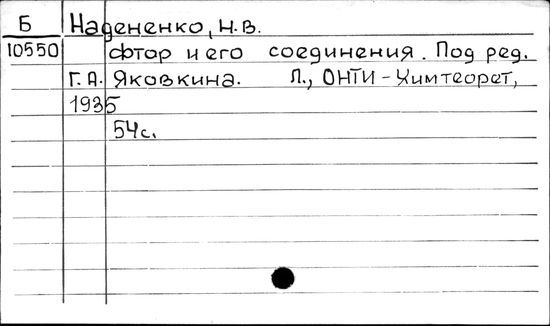 Б Надененко, Н.В.
10550 Фтор и его соединения. Под ред.
Г.А. Яковкина. Л., ОНТИ-Химтеорет,
1935
54с.